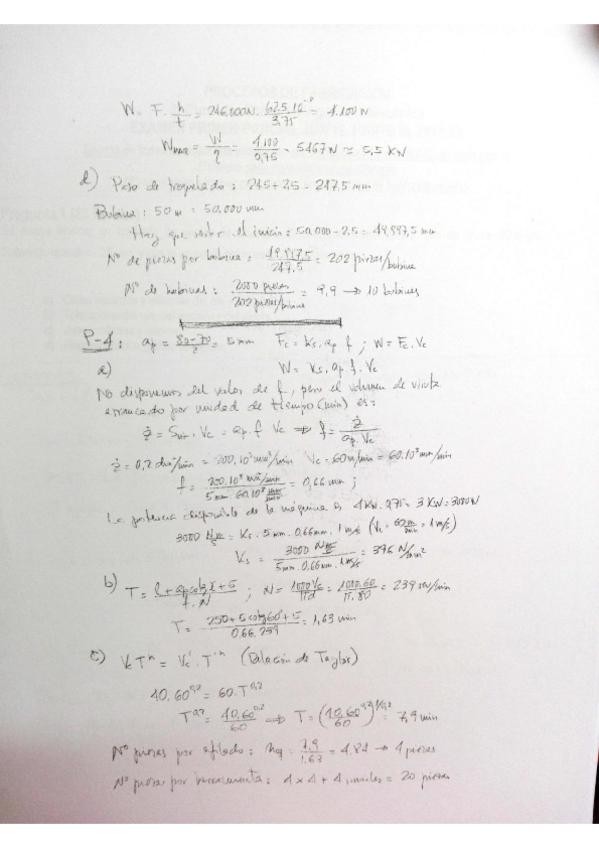 W = F · h/t = 246.000N · 62,5·10⁻³/3,75 = 4.100 N
Wmax = W/η = 4.100/0,75 = 5467 N ≃ 5,5 KN
d) Paso de troquelado: 245+2,5 = 247,5 mm
Bobina: 50 m = 50.000 mm
Hay que restar el inicio: 50.000-2,5 = 49.997,5 mm
Nº de piezas por bobina: 49.997,5/247,5 = 202 piezas/bobina
Nº de bobinas: 2000 piezas/202 piezas/bobina = 9,9 → 10 bobinas
P-4: ap = 80-70/2 = 5 mm Fc = Ks · ap · f ; W = Fc · Vc
a) W = Ks · ap · f · Vc
No disponemos del valor de f, pero el volumen de viruta
arrancado por unidad de tiempo (min) es:
Ż = Svir · Vc = ap · f · Vc ⇒ f = Ż/ap·Vc
Ż = 0,2 dm³/min = 200·10³ mm³/min Vc = 60 m/min = 60·10³ mm/min
f = 200·10³ mm³/min / 5 mm · 60·10³ mm/min = 0,66 mm ;
La potencia disponible de la máquina es 4 KW · 0,75 = 3 KW = 3000 W
3000 Nm/s = Ks · 5 mm · 0,66 mm · 1 m/s (Vc = 60 m/min = 1 m/s)
Ks = 3000 Nm/s / 5 mm · 0,66 mm · 1 m/s = 396 N/mm²
b) T = l + ap cotg χ + 5 / f · N ; N = 1000 Vc/πd = 1000·60/π·80 = 239 rev/min
T = 250 + 5 cotg 60° + 5 / 0,66 · 239 = 1,63 min
c) Vc Tⁿ = Vc' · T'ⁿ (Relación de Taylor)
40 · 60⁰,² = 60 · T⁰,²
T⁰,² = 40·60⁰,²/60 ⇒ T = (40·60⁰,²/60)^1/0,2 = 7,9 min
Nº piezas por afilado: na = 7,9/1,63 = 4,84 → 4 piezas
Nº piezas por herramienta: 4 × 4 + 4 = 20 piezas